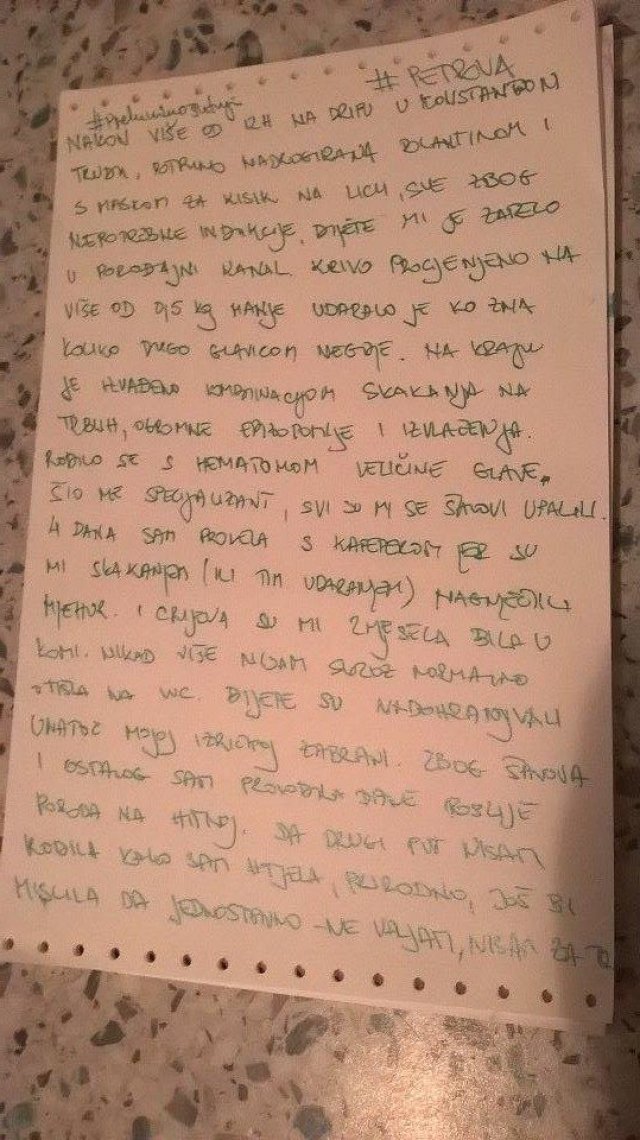 # PETROVA
NAKON VIŠE OD 12H NA DRIPU U KONSTANTNOM
TRUDU, POTPUNO NADROGIRANA DOLANTINOM I
S MASKOM ZA KISIK NA LICU, SVE ZBOG
NEPOTREBNE INDUKCIJE, DIJETE MI JE ZAPELO
U POROĐAJNI KANAL. KRIVO PROCJENJENO NA
VIŠE OD 0,5 kg MANJE UDARALO JE KO ZNA
KOLIKO DUGO GLAVICOM NEGDJE. NA KRAJU
JE IZVAĐENO KOMBINACIJOM SKAKANJA NA
TRBUH, OGROMNE EPIZOTOMIJE I IZVLAČENJA.
RODILO SE S HEMATOMOM VELIČINE GLAVE,
ŠIO ME SPECIJALIZANT, SVI SU MI SE ŠAVOVI UPALILI.
4 DANA SAM PROVELA S KATETEROM JER SU
MI SKAKANJEM (ILI TIM UDARANJEM) NAGNJEČILI
MJEHUR. I CRIJEVA SU MI 2 MJESECA BILA U
KOMI. NIKAD VIŠE NISAM SKROZ NORMALNO
OTIŠLA NA WC. DIJETE SU NADOHRANJIVALI
UNATOČ MOJOJ IZRIČITOJ ZABRANI. ZBOG ŠAVOVA
I OSTALOG SAM PROVODILA DANE POSLIJE
PORODA NA HITNOJ. DA DRUGI PUT NISAM
RODILA KAKO SAM HTJELA, PRIRODNO, JOŠ BI
MISLILA DA JEDNOSTAVNO - NE VALJAM, NISAM ZA TO